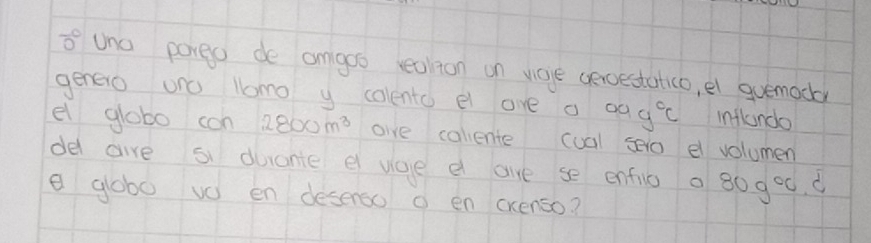 8° Una pareja de amigos realizan un viage aeroestatico, el quemador
genero una llama y calento el aire a 99 g°C inflando
el globo con 2800m³ aire caliente cual sera el volumen
del aire si durante el viage el aire se enfrio a 80 g°C. ¿
el globo va en desenso o en acenso?